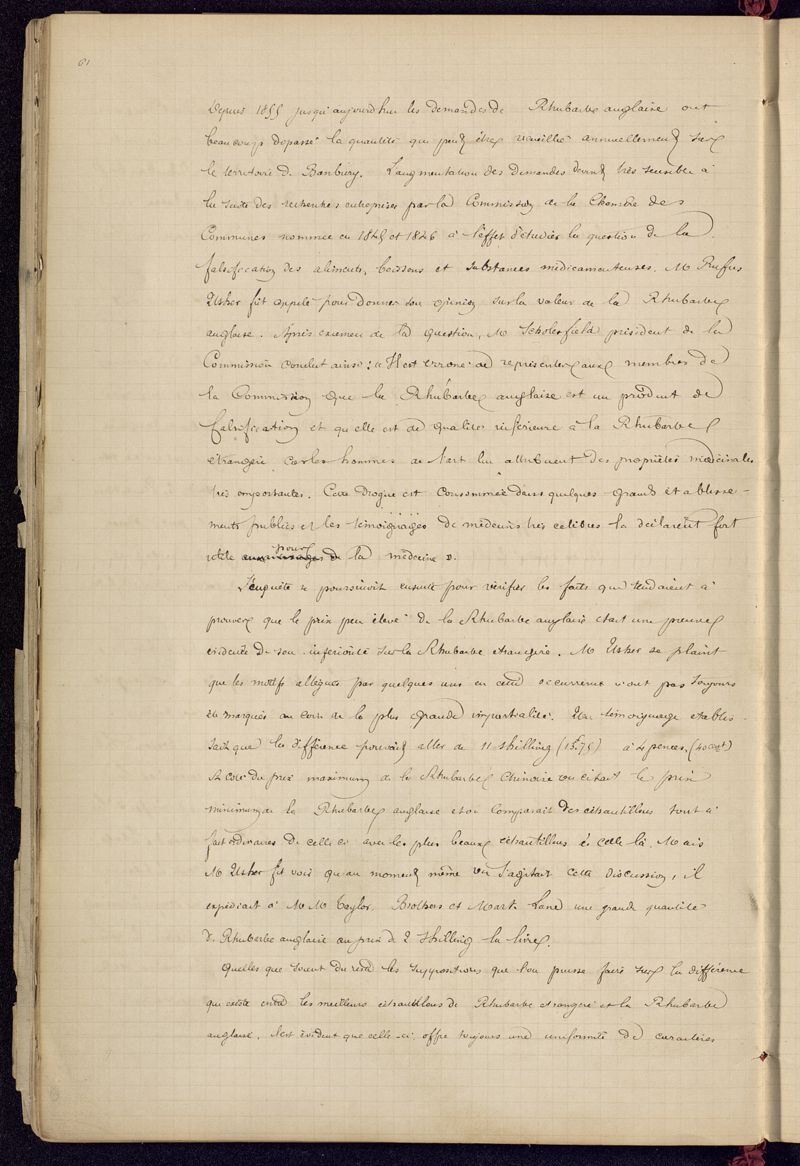 61
Depuis 1855 jusqu'aujourd'hui les demandes de Rhubarbe anglaise ont
beaucoup dépassé la quantité qui peut être recueillie annuellement sur
le territoire de Banbury. L'augmentation des demandes devint très sensible à
la suite des recherches entreprises par la Commission de la Chambre des
Communes nommée en et 1846 à l'effet d'étudier la question de la
falsification des aliments, boissons et substances médicamenteuses. M Rufus
Usher fût appelé pour donner son opinion sur la valeur de la Rhubarbe
anglaise. Après examen de la question, M Scholerfield président de la
Commission conclut ainsi : « Il est erroné de représenter aux membres de
la Commission que la Rhubarbe anglaise est un produit de
falsification et qu'elle est de qualité inférieure à la Rhubarbe
étrangère car les hommes de l'art lui attribuent des propriétés médicinales
très importantes. Cette drogue est consommée dans quelques grands établisse-
ments publics et les témoignages de médecins très célèbres la déclarent fort
utile pour la médecine ».
L'enquête se poursuivit ensuite pour vérifier les faits qui tendaient à
prouver que le prix peu élevé de la Rhubarbe anglaise était une preuve
évidente de son infériorité sur la Rhubarbe étrangère. M Usher se plaint
que les motifs allégués par quelques uns en cette occurrence n'ont pas toujours
été marqués au coin de la plus grande impartialité. Un témoignage établis-
sait que la différence pouvait aller de 11 shilling (13f.75) à 4 pences. (40 cent)
A côté du prix maximum de la Rhubarbe Chinoise on citait le prix
minimum de la Rhubarbe anglaise et on comparait des échantillons tout à
fait ordinaires de celle ci avec les plus beaux échantillons de celle là. Mais
M Usher fit voir qu'au moment même où s'agitait cette discussion, il
expédiait à M M Taylor, Brothers et Mark Lane une grande quantité
de Rhubarbe anglaise au prix de 2 shilling la livre.
Quelles que soient du reste les suppositions que l'on puisse faire sur la différence
qui existe entre les meilleurs échantillons de Rhubarbe étrangère et la Rhubarbe
anglaise, il est évident que celle-ci offre toujours une uniformité de caractères